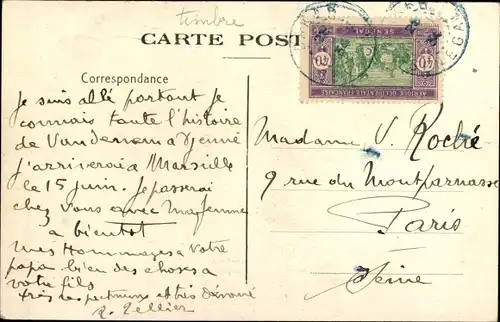 timbre
CARTE POST
Correspondance
je suis allé partout je
connais toute l'histoire
de
j'arriverai à Marseille
le 15 juin. Je passerai
chez vous avec ma femme
à bientot
mes Hommages a votre
papa bien des choses a
votre fils
très respectueux et très dévoué
R. Tellier
SENEGAL
40 40
AFRIQUE OCCIDENTALE FRANÇAISE
Madame V. Roché
9 rue du Montparnasse
Paris
Seine